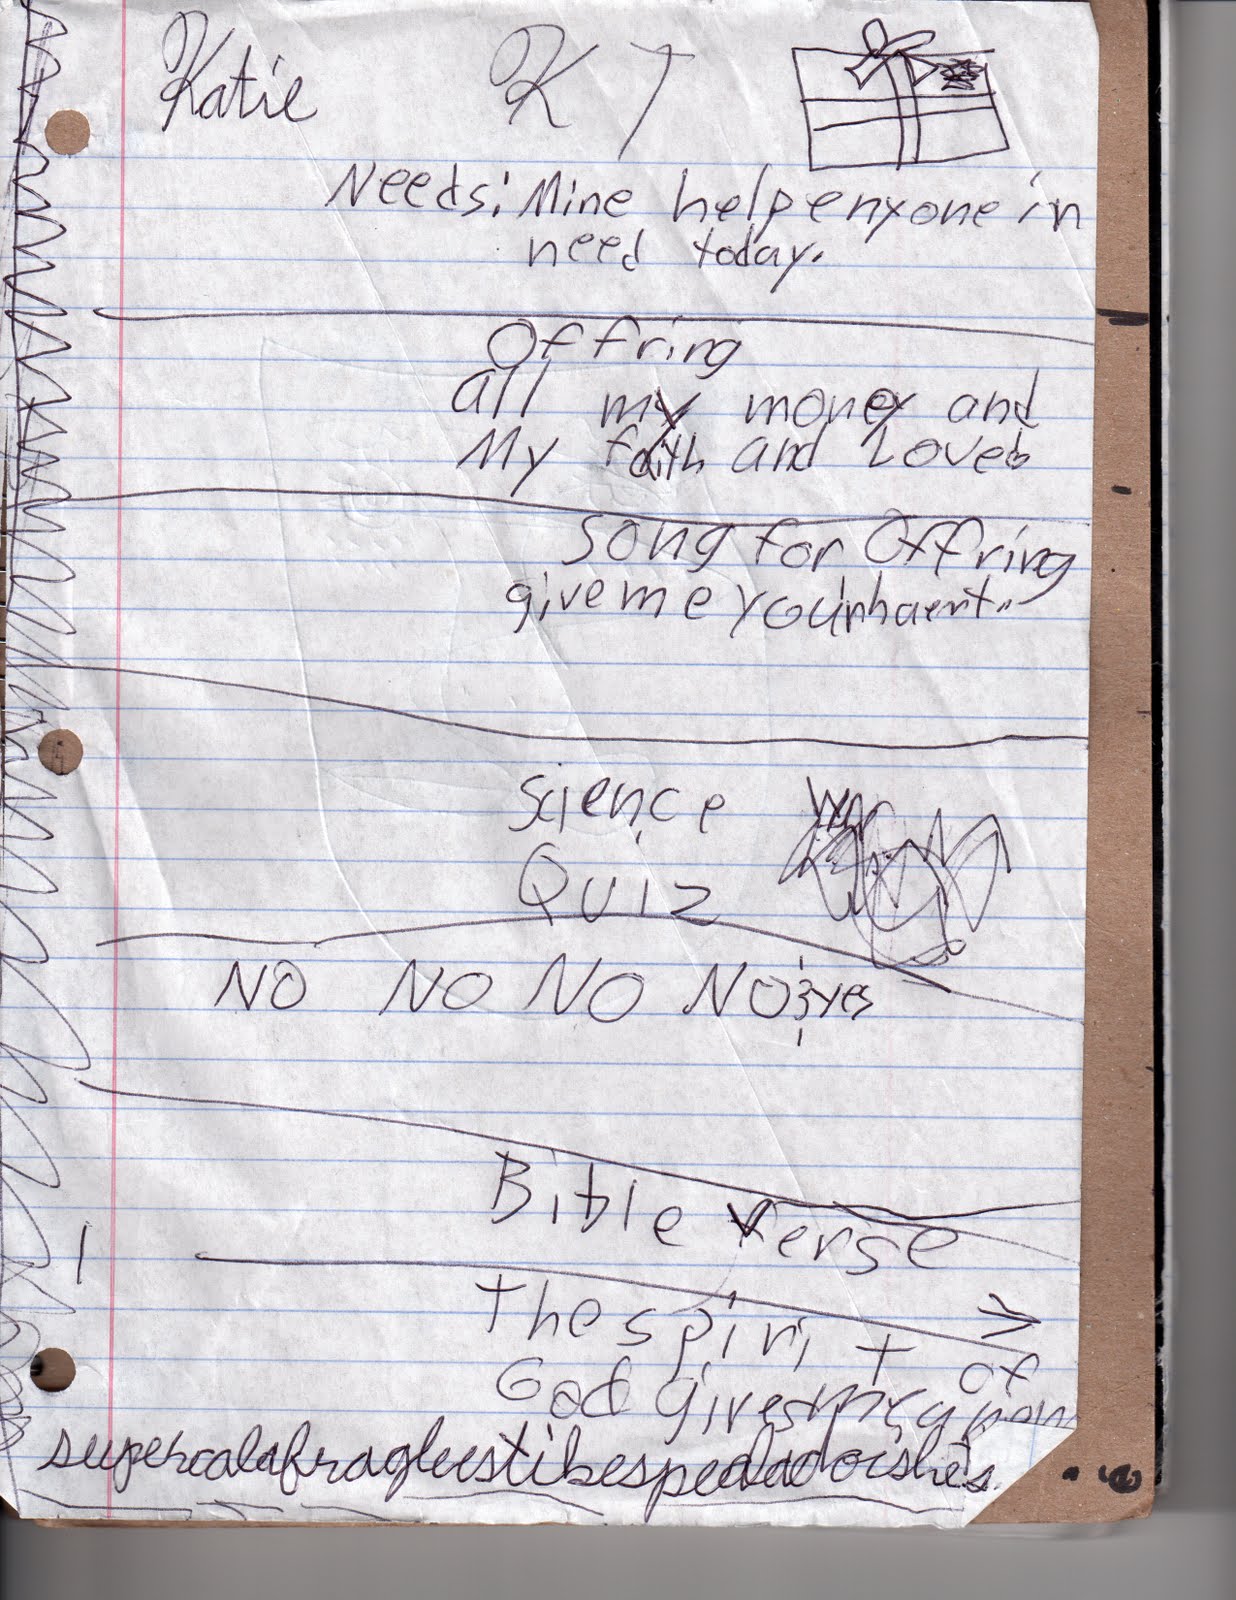 Katie K 7
Needs: Mine help enyone in
need today.
Offring
all my money and
My faith and Loves
Song for Offring
give me your haert..
Science
Quiz
NO NO NO NO yes
Bible Verse
1
the spirit of
God gives my
supercalafragleestikespealadoishes